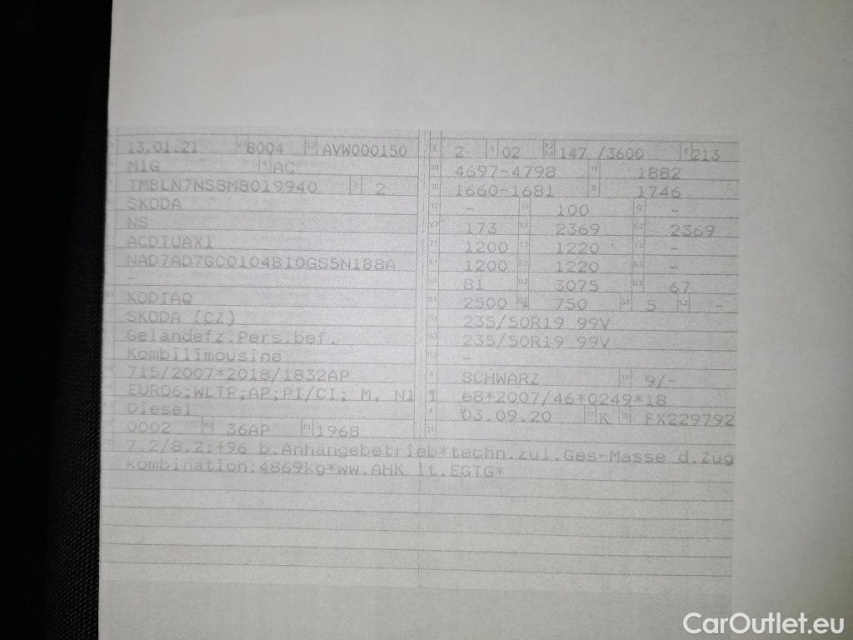 13.01.21 8004 AVW000150
M1G AC
TMBLN7NS8M8019940 2
SKODA
NS
ACDTUAX1
NAD7AD7GC0104B10GS5N1B8A
-
KODIAQ
SKODA (CZ)
Geländefz.Pers.bef.
Kombilimousine
715/2007*2018/1832AP
EURO6;WLTP;AP;PI/CI; M, N1 I
Diesel
0002 36AP 1968
2 02 147 /3600 213
4697-4798 1882
1660-1681 1746
- 100 -
173 2369 2369
1200 1220 -
1200 1220 -
81 3075 67
2500 750 5 -
235/50R19 99V
235/50R19 99V
-
SCHWARZ 9/-
e8*2007/46*0249*18
03.09.20 K FX229792
7.2/8.2:+96 b.Anhängebetrieb*techn.zul.Ges-Masse d.Zug
kombination:4869kg*ww.AHK lt.EGTG*
CarOutlet.eu